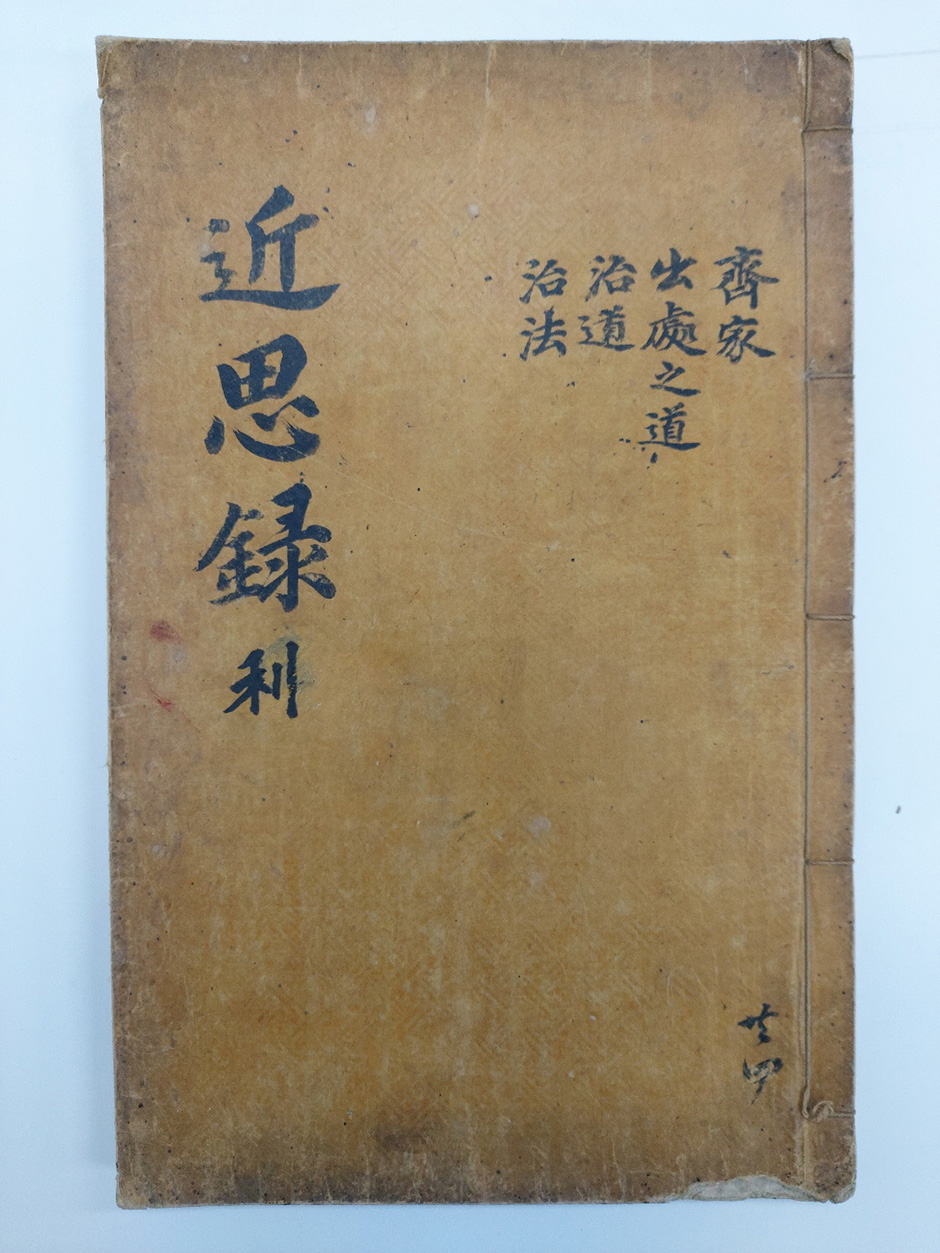 齊家
出處之道
治道
治法
共四
近思録 利